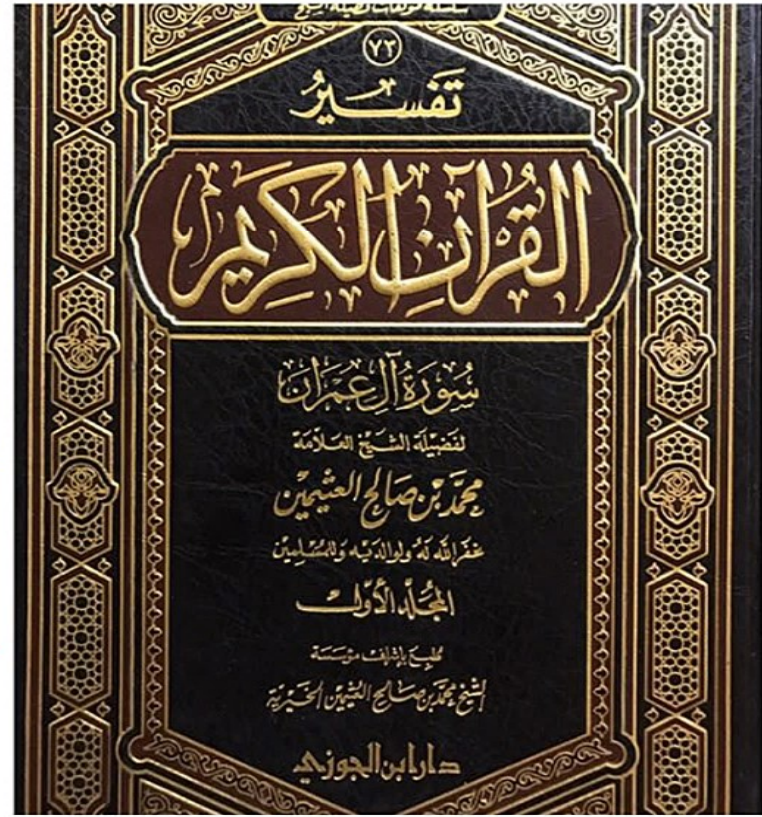 سلسلة مؤلفات فضيلة الشيخ
٧٣
تفسير
القرآن الكريم
سورة آل عمران
لفضيلة الشيخ العلامة
محمد بن صالح العثيمين
غفر الله له ولوالديه وللمسلمين
المجلد الأول
طبع بإشراف مؤسسة
الشيخ محمد بن صالح العثيمين الخيرية
دار ابن الجوزي